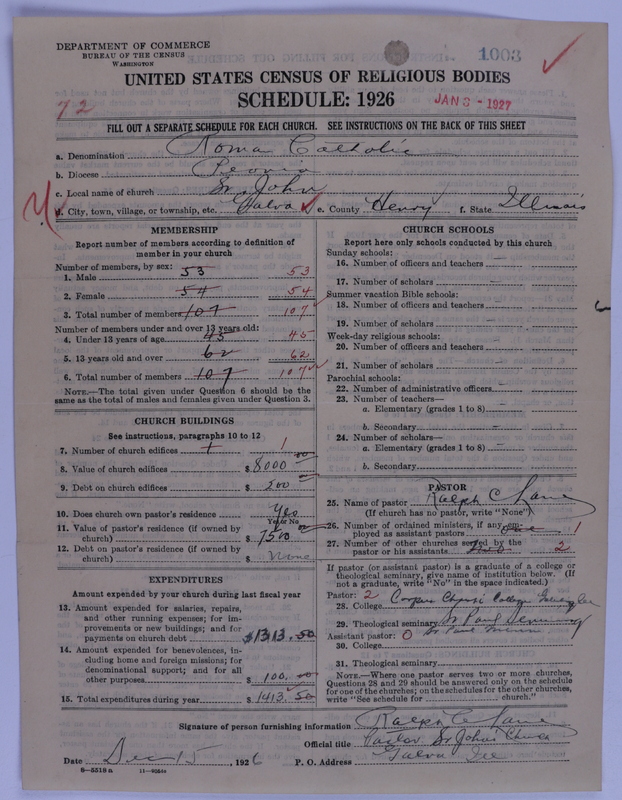 DEPARTMENT OF COMMERCE
BUREAU OF THE CENSUS
WASHINGTON
1003
UNITED STATES CENSUS OF RELIGIOUS BODIES
SCHEDULE: 1926
72
JAN 3 - 1927
FILL OUT A SEPARATE SCHEDULE FOR EACH CHURCH. SEE INSTRUCTIONS ON THE BACK OF THIS SHEET
a. Denomination Roman Catholic
b. Diocese Peoria
c. Local name of church St. John
d. City, town, village, or township, etc. Galva e. County Henry f. State Illinois
MEMBERSHIP
Report number of members according to definition of member in your church
Number of members, by sex:
1. Male 53 53
2. Female 54 54
3. Total number of members 107 107
Number of members under and over 13 years old:
4. Under 13 years of age 45 45
5. 13 years old and over 62 62
6. Total number of members 107 107
NOTE.—The total given under Question 6 should be the same as the total of males and females given under Question 3.
CHURCH BUILDINGS
See instructions, paragraphs 10 to 12
7. Number of church edifices 1 1
8. Value of church edifices $ 8000 00
9. Debt on church edifices $ 500 00
10. Does church own pastor's residence Yes
Yes or No
11. Value of pastor's residence (if owned by church) $ 7500 00
12. Debt on pastor's residence (if owned by church) $ None
EXPENDITURES
Amount expended by your church during last fiscal year
13. Amount expended for salaries, repairs, and other running expenses; for improvements or new buildings; and for payments on church debt $ 1313.50
14. Amount expended for benevolences, including home and foreign missions; for denominational support; and for all other purposes $ 100.00
15. Total expenditures during year $ 1413.50
CHURCH SCHOOLS
Report here only schools conducted by this church
Sunday schools:
16. Number of officers and teachers
17. Number of scholars
Summer vacation Bible schools:
18. Number of officers and teachers
19. Number of scholars
Week-day religious schools:
20. Number of officers and teachers
21. Number of scholars
Parochial schools:
22. Number of administrative officers
23. Number of teachers—
a. Elementary (grades 1 to 8)
b. Secondary
24. Number of scholars—
a. Elementary (grades 1 to 8)
b. Secondary
PASTOR
25. Name of pastor Ralph C Lane
(If church has no pastor, write "None")
26. Number of ordained ministers, if any employed as assistant pastors one 1
27. Number of other churches served by the pastor or his assistants two 2
If pastor (or assistant pastor) is a graduate of a college or theological seminary, give name of institution below. (If not a graduate, write "No" in the space indicated.)
Pastor: 2
28. College Corpus Christi College
29. Theological seminary St Paul Seminary
St Paul
Assistant pastor: 0
30. College
31. Theological seminary
NOTE.—Where one pastor serves two or more churches, Questions 28 and 29 should be answered only on the schedule for one of the churches; on the schedules for the other churches, write "See schedule for church."
Signature of person furnishing information Ralph C Lane
Official title Pastor St John's Church
Date Dec 15, 1926 P. O. Address Galva Ill
8—5518 a 11—9054